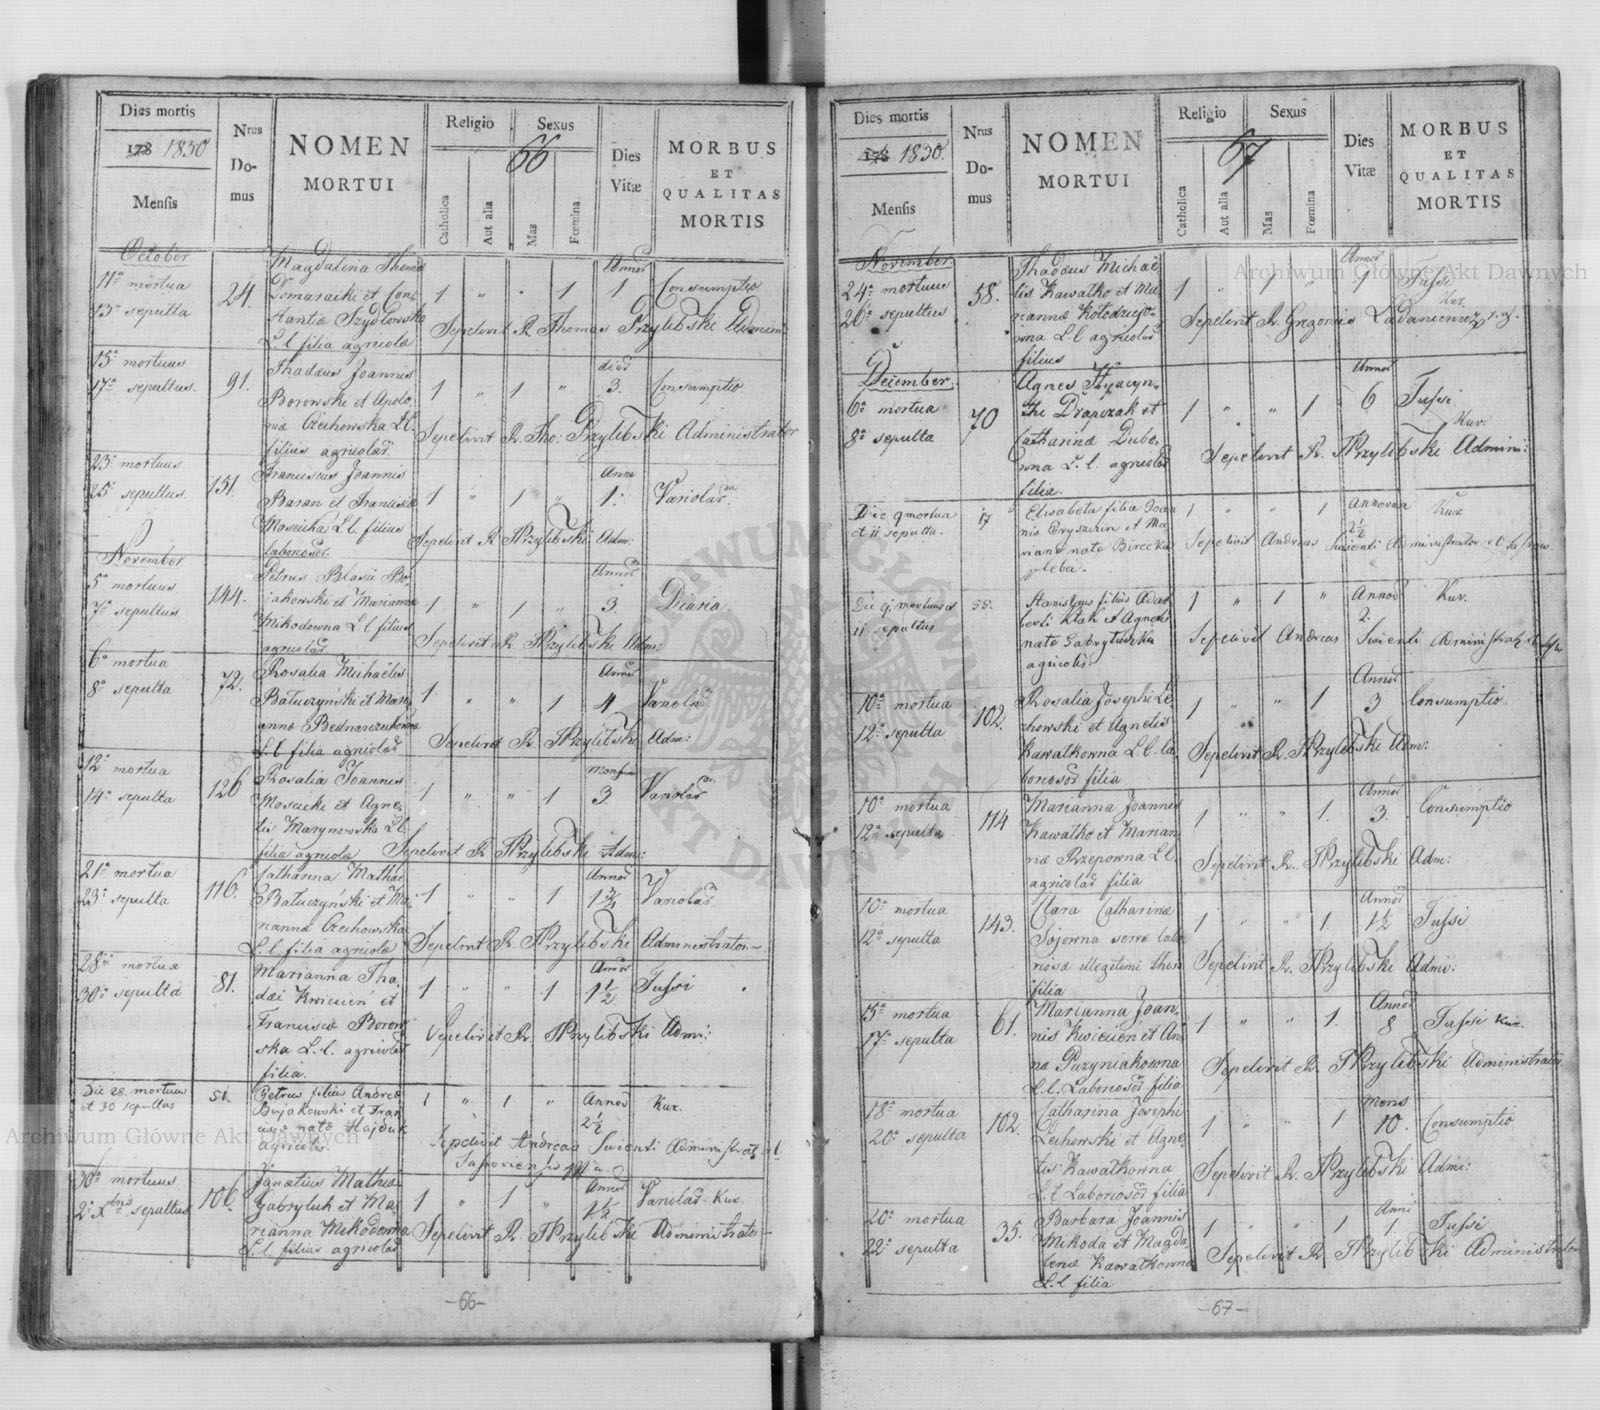 Dies mortis
178 1830
Mensis
Nrus
Do-
mus
NOMEN
MORTUI
Religio
Sexus
66
Catholica
Aut alia
Mas
Fœmina
Dies
Vitæ
MORBUS
ET
QUALITAS
MORTIS
October
11a mortua
13a sepulta
24.
Magdalina Thoma
Domaraiki et Con
stantiæ Szydłowska
L.l filia agricolæ
1 " " 1 1
Consumptio
Sepelivit R. Thomas Przylibski Admin:
15a mortuus
17a sepultus.
91.
Thadæus Joannis
Borowski et Apolo
niæ Czechowska L.l.
filius agricolar.
1 " 1 " 3.
Consumptio
Sepelivit R. Tho: Przylibski Administrator
23a mortuus
25a sepultus
151.
Franciscus Joannis
Baran et Franciscæ
Mosciska L.l. filius
laborosor.
1 " 1 " 1.
Variolar.
Sepelivit R. TPrzylibski Adm:
November
5a mortuus
7a sepultus
144.
Petrus Blasii Bo-
jakowski et Marianna
Mikodowna L.l filius
1 " 1 " 3.
Diaria
Sepelivit R TPrzylibski Adm:
6a mortua
8a sepulta
72.
Rosalia Michaëlis
Batuczyński et Mari
annæ Bednarczukowna
L.l filia agricolar
1 " " 1 4
Variolar
Sepelivit R. TPrzylibski Adm:
12a mortua
14a sepulta
126
Rosalia Joannis
Moscicki et Agne-
tis Marynowska L.l.
filia agricolæ
1 " " 1 3.
Variolar
Sepelivit R TPrzylibski Adm:
21a mortua
23a sepulta
116.
Catharina Mathæi
Batuczyński et Ma
riannæ Czechowska
L.l filia agricolæ
1 " " 1
Variolar
Sepelivit R. TPrzylibski Administrator
28a mortua
30a sepulta
81.
Marianna Tha
dæi Kwiecień et
Franciscæ Borow
ska L.l. agricolar
filia.
1 " " 1 1 1/2
Tussi
Sepelivit R. TPrzylibski Adm:
Die 28 mortuus
et 30 sepultus
51.
Petrus filius Andreæ
Bujakowski et Fran
cisca nate Hajduk
agricolis.
1 " 1 " Annor
2 1/2
Kur.
Sepelivit Andreas Swienti Administrat
30a mortuus
2a Xbris sepultus
106.
Ignatius Mathia
Gabryluk et Ma
rianna Mikodowna
L.l filius agricolar
1 " 1 " 1 1/2
Variolar. Kur.
Sepelivit R. TPrzylibski Administrator
-66-
Dies mortis
178 1830.
Mensis
Nrus
Do-
mus
NOMEN
MORTUI
Religio
Sexus
67
Catholica
Aut alia
Mas
Fœmina
Dies
Vitæ
MORBUS
ET
QUALITAS
MORTIS
November
24a mortuus
26a sepultus
58.
Thadæus Michaë
lis Kawałko et Ma
riannæ Kołodziejo-
wna L.l agricolar
filius
1 " 1 " 9
Tussi
Kur.
Sepelivit R. Gregorius Ładaniewicz
December
6a mortua
8a sepulta
70
Agnes Hyacyn-
thi Drapczak et
Catharinæ Dubo
wna L.l. agricolar
filia.
1 " " 1 6
Tussi
Kur.
Sepelivit R. TPrzylibski Admini:
Die 9 mortua
et 11 sepulta.
17
Elisabeta filia Joan
nis Gryszkin et Ma
rianna nate Birecka
1 " " 1
2 1/2
Kur
Sepelivit Andreas Swienti Administrator
Die 9 mortuus et
11 sepultus
55.
Stanislaus filius Adal
berti Ktak et Agnetis
nate Gabryluszka
agricolis
1 " 1 " Annor
2.
Kur.
Sepelivit Andreas Swienti Administrat
10a mortua
12a sepulta
102.
Rosalia Josephi Le
chowski et Agnetis
Kawałkowna L.l. la
boriosor filia
1 " " 1 3
Consumptio.
Sepelivit R. TPrzylibski Adm:
10a mortua
12a sepulta
114
Marianna Joannis
Kawałko et Marian
næ Rzepowna L.l.
agricolar filia
1 " " 1. 3.
Consumptio
Sepelivit R. TPrzylibski Adm:
10a mortua
12a sepulta
143.
Clara Catharinæ
Sojowna servæ labo
riosæ illegitimi thori
filia
1 " " 1. 1 1/2
Tussi
Sepelivit R. TPrzylibski Adm:
15a mortua
17a sepulta
61.
Marianna Joan-
nis Kwiecień et An
næ Puzyniakowna
L.l. Laboriosor filia
1 " " 1. 8
Tussi Kur.
Sepelivit R. TPrzylibski Administrator
18a mortua
20a sepulta
102.
Catharina Josephi
Lechowski et Agne
tis Kawałkowna
L.l Laboriosor filia
1 " " 1 10.
Consumptio
Sepelivit R. TPrzylibski Adm:
20a mortua
22a sepulta
35.
Barbara Joannis
Mikoda et Magda
lenæ Kawałkowna
L.l filia
1 " " 1 1.
Tussi
Sepelivit R TPrzylibski Administrator
-67-
Archiwum Główne Akt Dawnych
Archiwum Główne Akt Dawnych